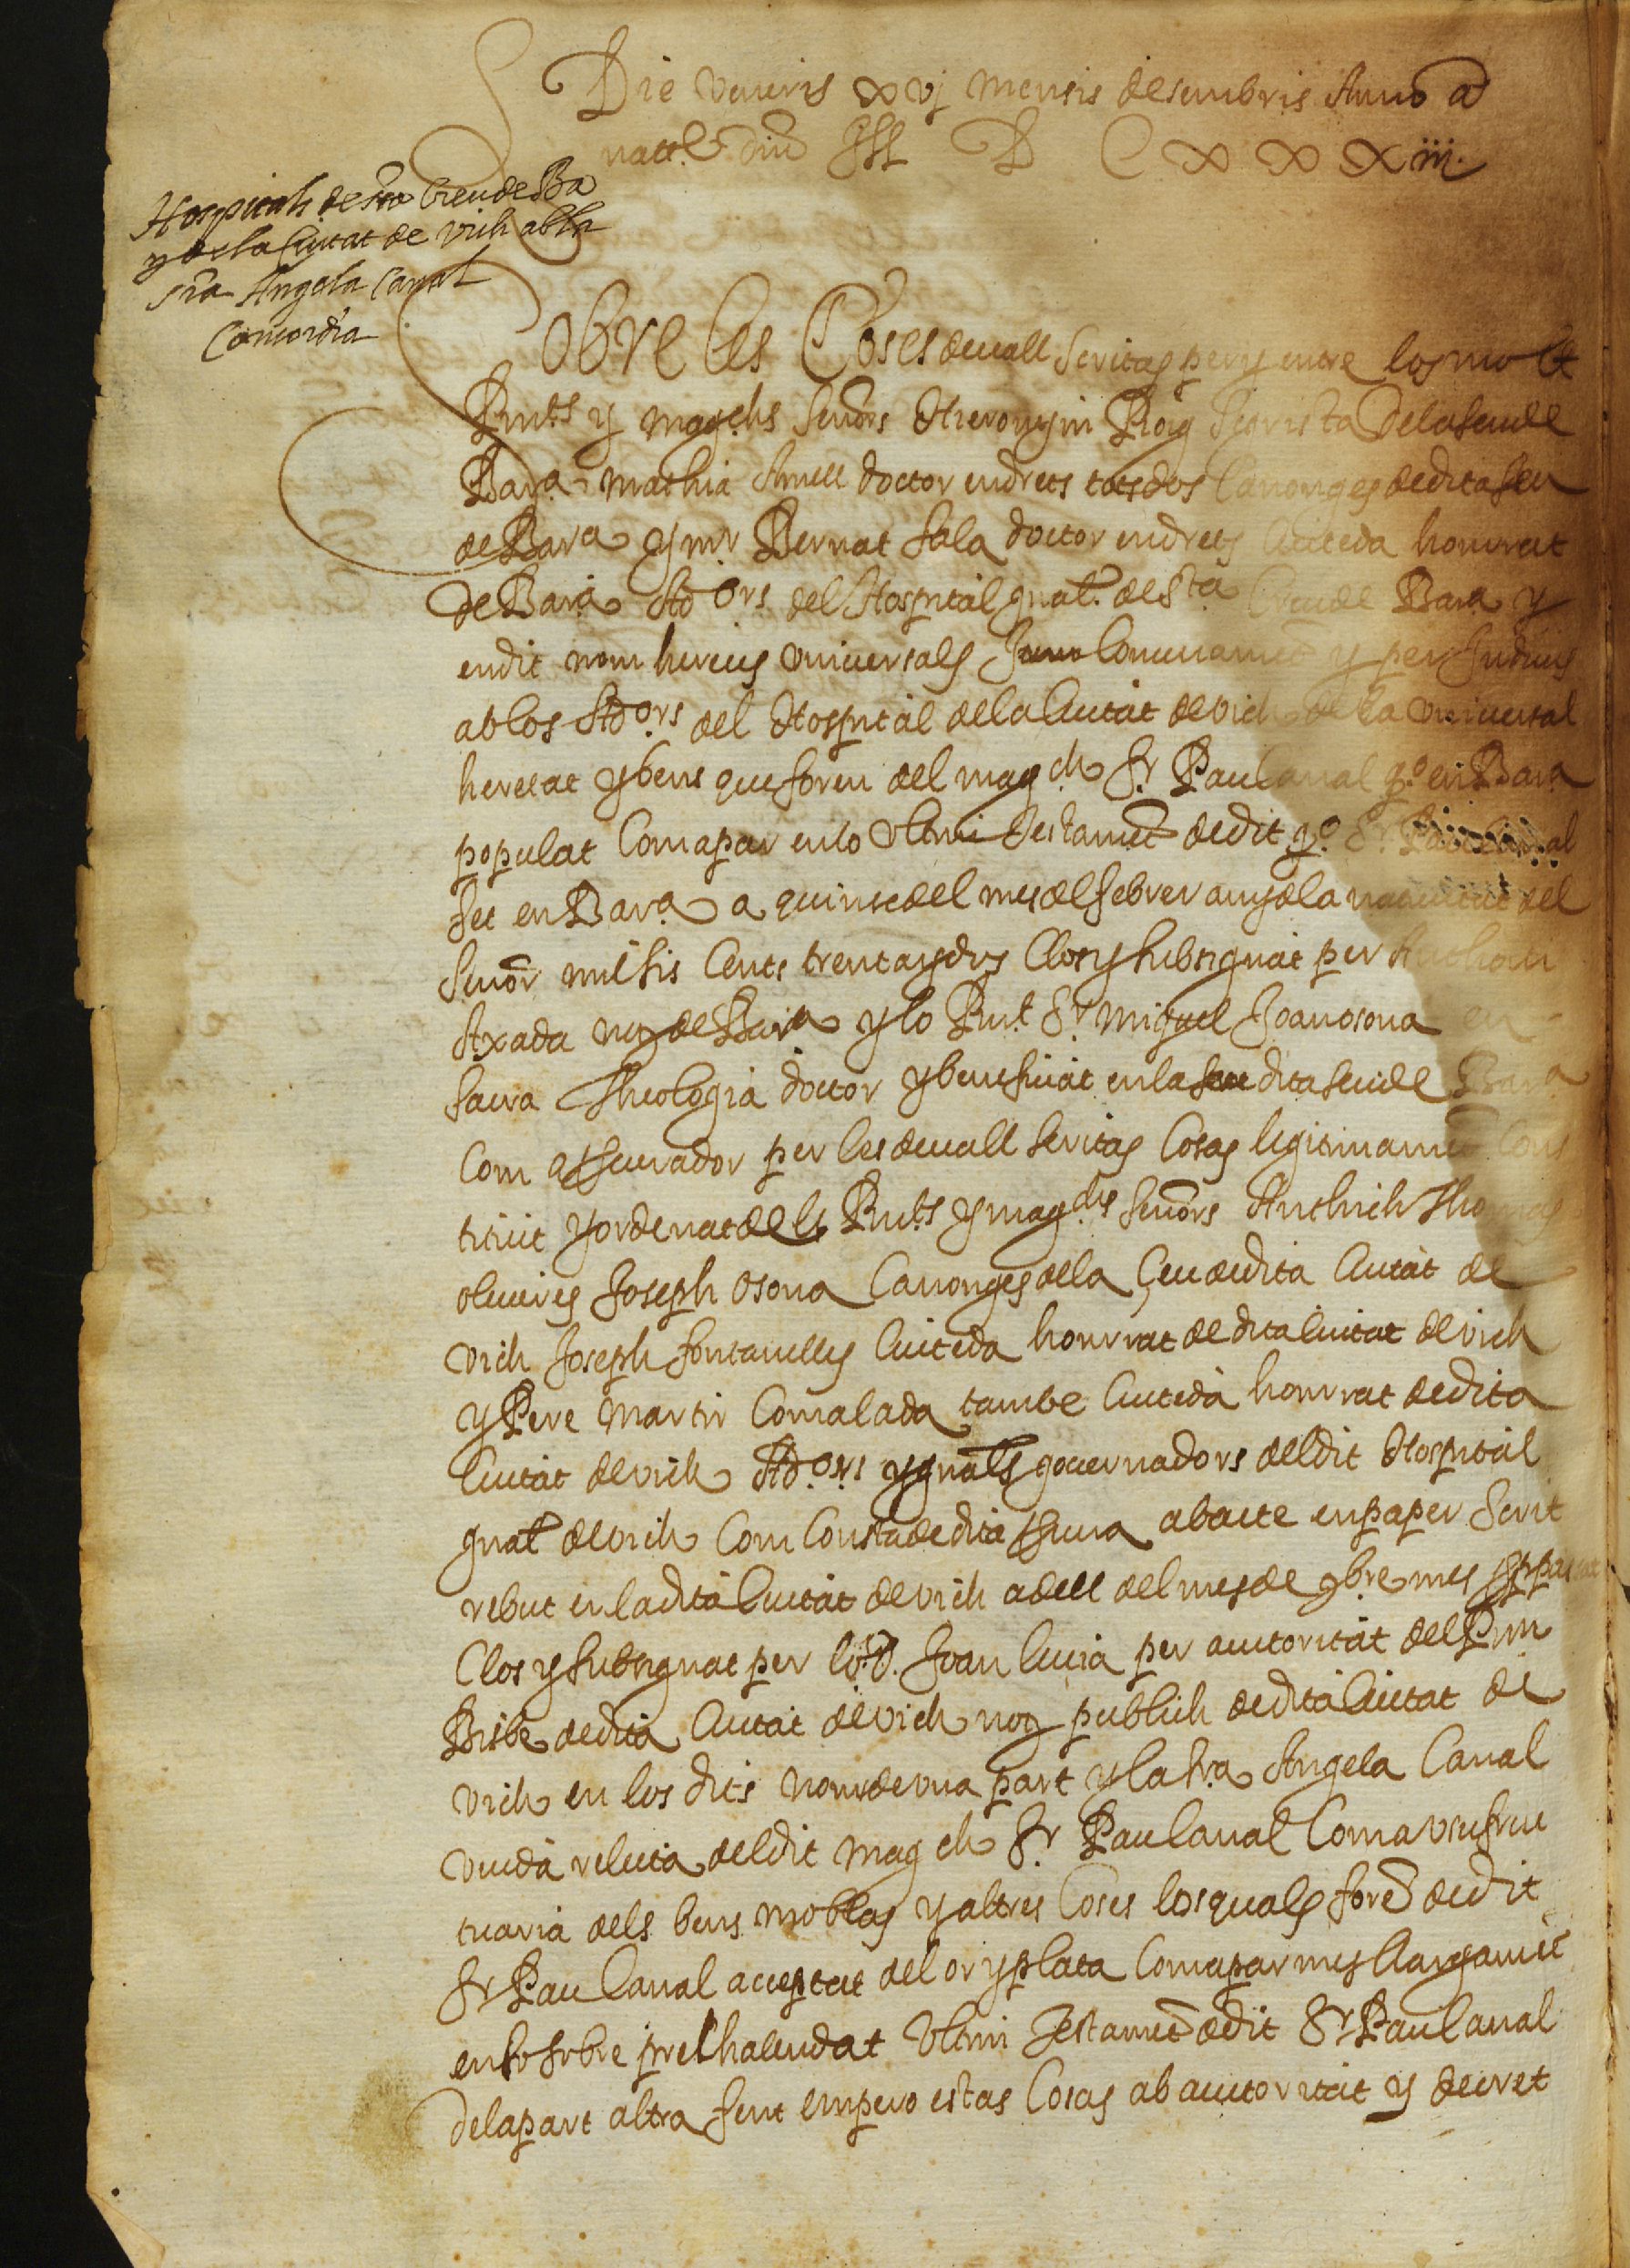 Die veneris xvj mensis desembris Anno a
nattē dn̄i M D C x x x iii.
Hospitals de sta Creu de Ba
y de la Ciutat de Vich ab la
sra Angela Canal
Concordia
Sobre les Coses devall scritas per y entre los molt
Rnts y magchs senōrs Hieronym Roig Tcorista de la seu de
Bara Mathia Amell doctor en drets tots dos Canonges de dita seu
de Bara y mr Bernat Sala doctor en drets Ciuteda honrrat
de Bara Adors del Hospital gnal de sta Creu de Bara y
en dit nom hereus universals Comunament y per Indivis
ab los Adors del Hospital de la Ciutat de Vich de la universal
heretat y bens que foren del magch Sr Pau Canal qo en Bara
populat Com apar en lo ultim testament de dit qo Sr Pau Canal
fet en Bara a quinse del mes de febrer any de la nativitat del
Senōr mil sis Cents trenta y dos Clos y subsignat per Anthoni
Axada noy de Bara y lo Rnt Sr Miguel Joan Osona en
sacra Theologia doctor y beneficiat en la dita seu de Bara
Com a procurador per les devall scritas Cosas legitimament Cons
tituit y ordenat dels Rnts y magchs senōrs Anthich Thomas
oliveres Joseph Osona Canonges de la Seu de dita Ciutat de
Vich Joseph fontanelles Ciuteda honrrat de dita Ciutat de Vich
y Pere Martir Comalada tambe Ciuteda honrrat de dita
Ciutat de Vich Adors y gnals governadors del dit Hospital
gnal de Vich Com Consta de dita pcura ab acte en paper scrit
rebut en la dita Ciutat de Vich a dell del mes de 9bre mes prop passat
Clos y subsignat per lo d. Joan Lucia per autoritat del Rnm
Bisbe de dita Ciutat de Vich noy publich de dita Ciutat de
Vich en los dits noms de una part y la sra Angela Canal
viuda relicta del dit magch Sr Pau Canal Com a usufruc
tuaria dels bens mobles y altres Coses los quals foren de dit
Sr Pau Canal acceptat del or y plata Com apar mes llargament
en lo sobre prechalendat Ultim Testament de dit Sr Pau Canal
de la part altra fent empero estas Cosas ab autoritat y decret